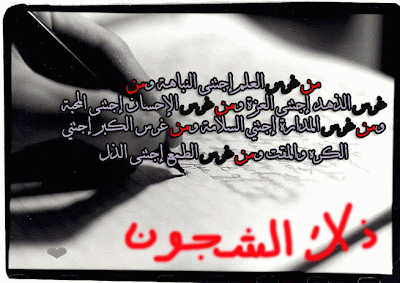 من غرس العلم إجتنى النباهة ومن
غرس الذهد إجتنى العزة ومن غرس الإحسان إجتنى المحبة
ومن غرس المدارة إجتني السلامة ومن غرس الكبر إجتني
الكره والمقت ومن غرس الطمع إجتنى الذل
الشجون